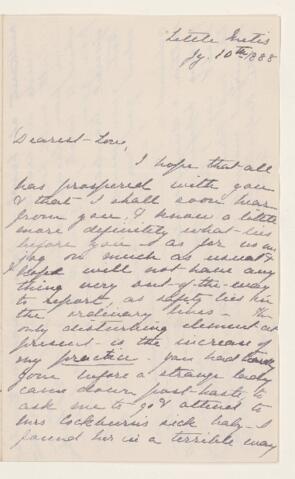 Little Metis
Jy. 10th 1888
Dearest Love,
I hope that all
has prospered with you
& that I shall soon hear
from you, & know a little
more definitely what lies
before you & as for us we
jog on much as usual &
I hope will not have any
thing very out-of-the-way
to report, as safety lies in
the ordinary lines - the
only disturbing element at
present is the increase of
my practice. you had
gone before a strange lady
came down post-haste to
ask me to go & attend to
Mrs Cockburn's sick baby - I
found her in a terrible way